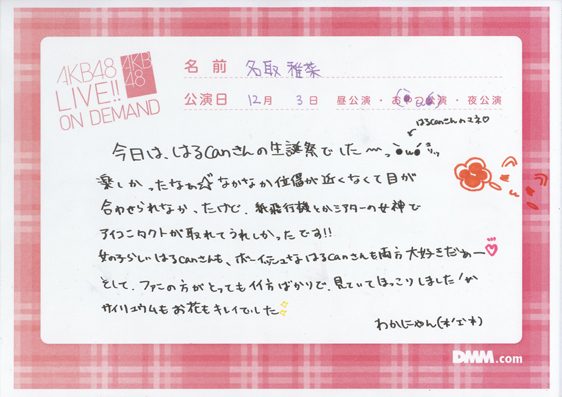 AKB48
LIVE!!
ON DEMAND
AKB
48
名前 名取 稚菜
公演日 12月 3日 昼公演・お公演・夜公演
はるcanさんのマネ♡
今日は、はるcanさんの生誕祭でした〜っ
楽しかったなぁ☆なかなか位置が近くなくて目が
合わせられなかったけど、紙飛行機とかシアターの女神で
アイコンタクトが取れてうれしかったです!!
女の子らしいはるcanさんも、ボーイッシュなはるcanさんも両方大好きだぁー♡
そして、ファンの方がとっても仏方ばかりで、見ていてほっこりしました!
サイリュウムもお花もキレイでした
わかにゃん
DMM.com